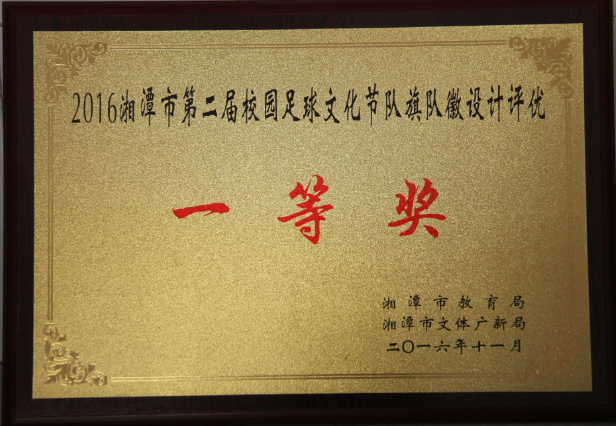 2016湘潭市第二届校园足球文化节队旗队徽设计评优
一等奖
湘潭市教育局
湘潭市文体广新局
二〇一六年十一月